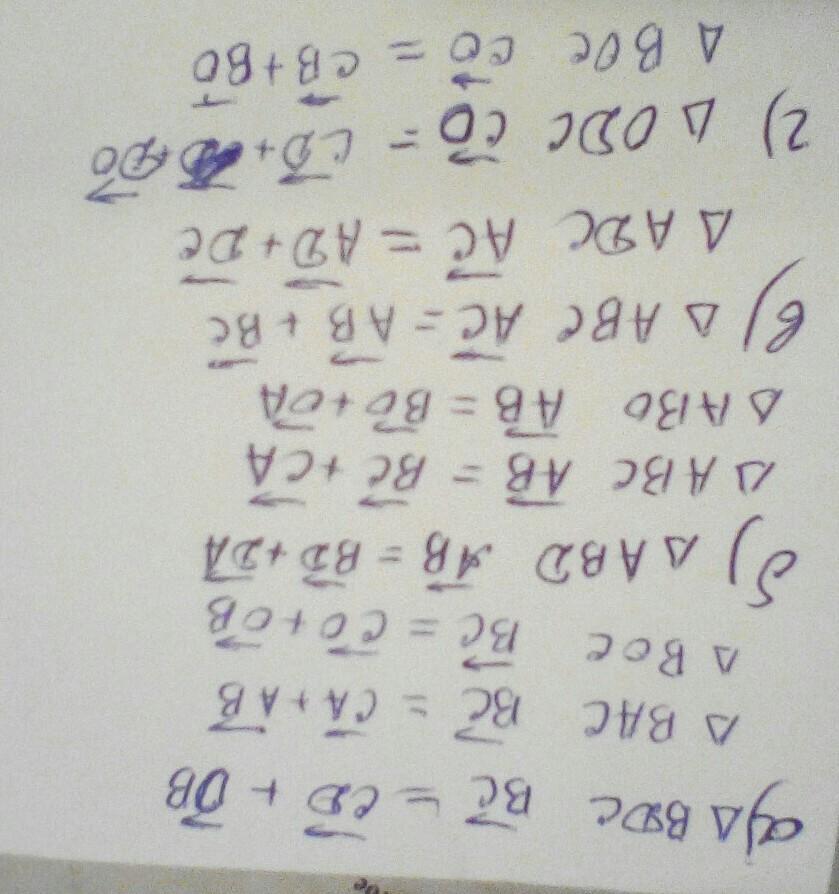 а) △ BDC BC = CD + DB
△ BAC BC = CA + AB
△ BOC BC = CO + OB
б) △ ABD AB = BD + DA
△ ABC AB = BC + CA
△ ABO AB = BO + OA
в) △ ABC AC = AB + BC
△ ADC AC = AD + DC
г) △ ODC CO = CD + DO
△ BOC CO = CB + BO